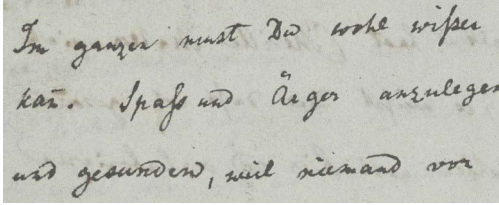 Im ganzen must Du wohl wißen
kan̄. Spaß und Ärger anzulegen
und gesunden, weil niemand von